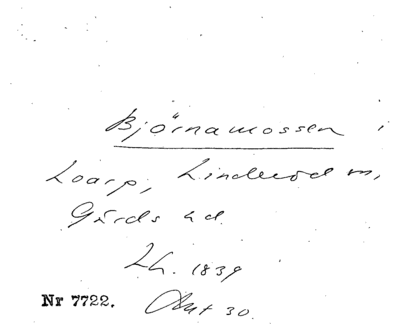 Björnamossen i
Loarp, Linderöd sn,
Gärds hd.
Lh. 1839
Nr 7722. Akt 30.